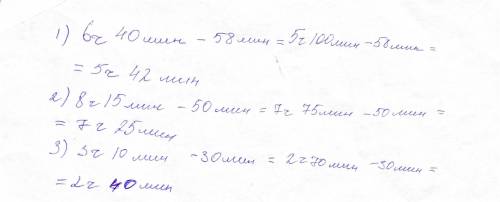 1) 6ч 40 мин - 58 мин = 5ч 100 мин - 58 мин =
= 5ч 42 мин
2) 8ч 15 мин - 50 мин = 7ч 75 мин - 50 мин =
= 7ч 25 мин
3) 3ч 10 мин - 30 мин = 2ч 70 мин - 30 мин =
= 2ч 40 мин